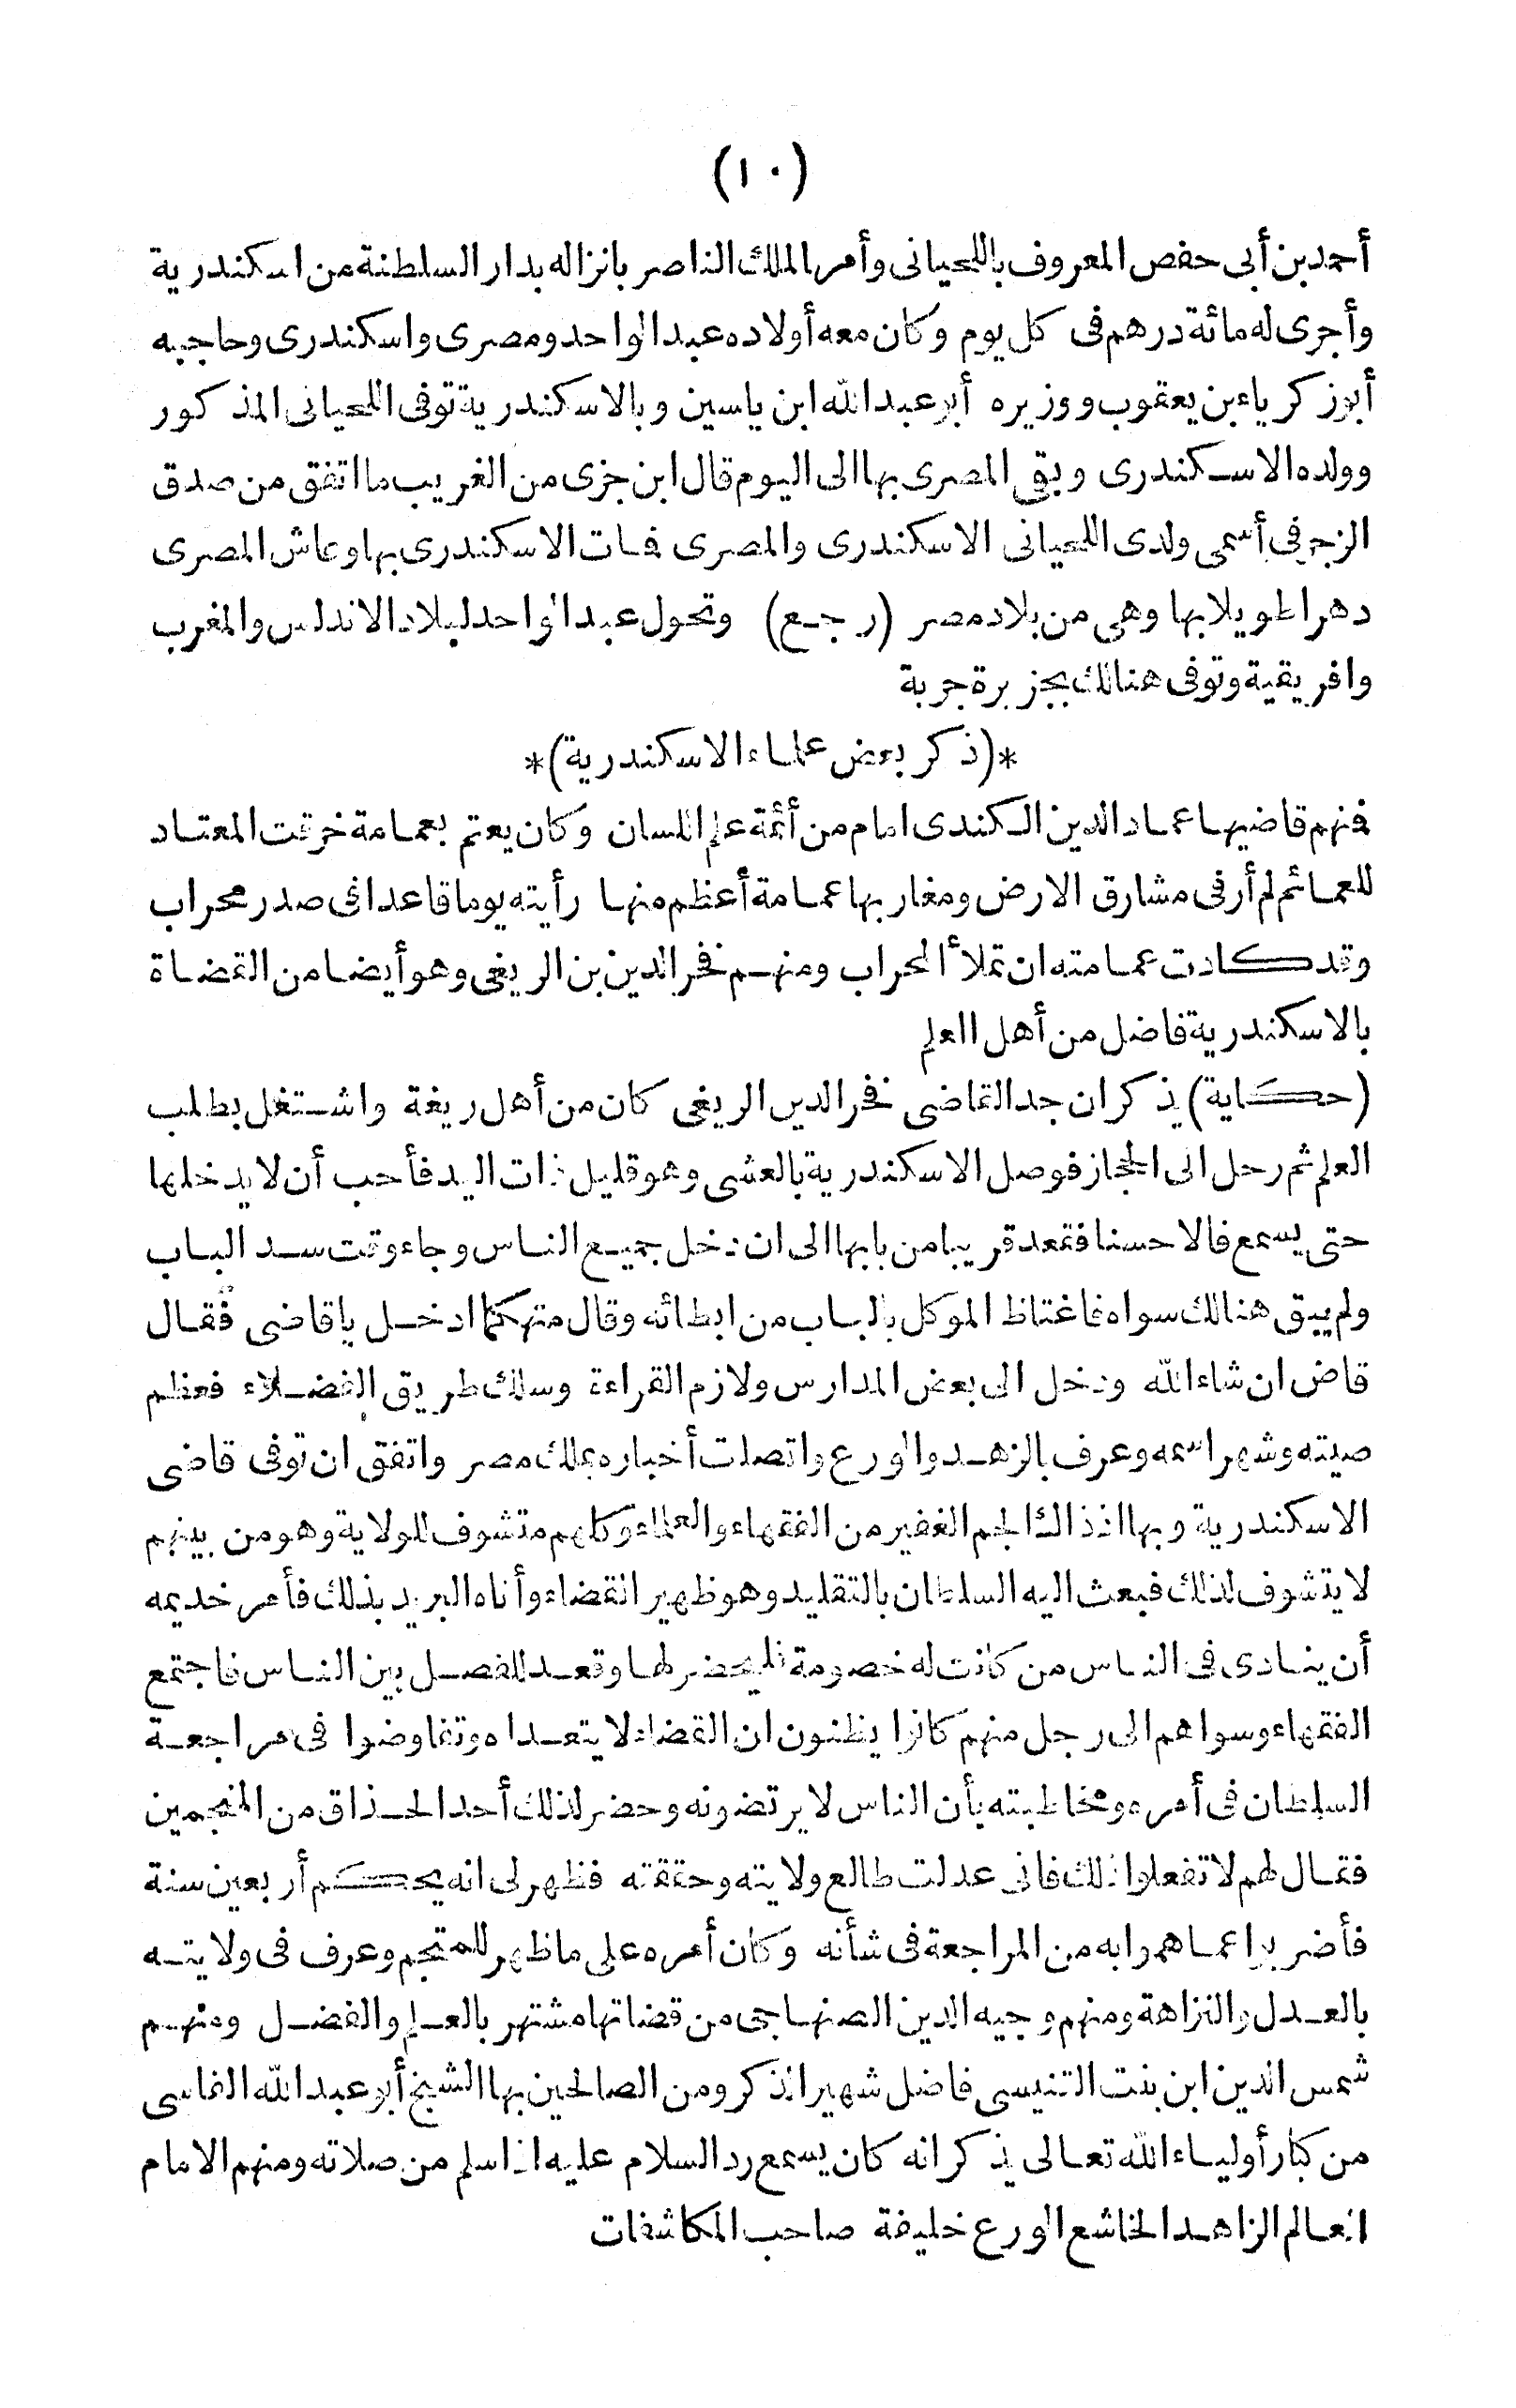 (١٠)
أحمد بن أبى حفص المعروف باللحيانى وأمر الملك الناصر بانزاله بدار السلطنة من اسكندرية
وأجرى له مائة درهم فى كل يوم وكان معه أولاده عبد الواحد ومصرى واسكندرى وحاجبه
أبو زكرياء بن يعقوب ووزيره أبو عبد الله ابن ياسين وبالاسكندرية توفى اللحيانى المذكور
وولده الاسكندرى وبقى المصرى بها الى اليوم قال ابن جزى من الغريب ما اتفق من صدق
الزجر فى أسمى ولدى اللحيانى الاسكندرى والمصرى فمات الاسكندرى بها وعاش المصرى
دهرا طويلا بها وهى من بلاد مصر (رجع) وتحول عبد الواحد لبلاد الاندلس والمغرب
وافريقية وتوفى هنالك بجزيرة جربة
*(ذكر بعض علماء الاسكندرية)*
فمنهم قاضيها عماد الدين الكندى امام من أئمة علم اللسان وكان يعتم بعمامة خرقت المعتاد
للعمائم لم أر فى مشارق الارض ومغاربها عمامة أعظم منها رأيته يوما قاعدا فى صدر محراب
وقد كادت عمامته ان تملأ المحراب ومنهم فخر الدين بن الريغى وهو أيضا من القضاة
بالاسكندرية فاضل من أهل العلم
(حكاية) يذكر ان جد القاضى فخر الدين الريغى كان من أهل ريغة واشتغل بطلب
العلم ثم رحل الى الحجاز فوصل الاسكندرية بالعشى وهو قليل ذات اليد فأحب أن لا يدخلها
حتى يسمع فالا حسنا فقعد قريبا من بابها الى ان دخل جميع الناس وجاء وقت سد الباب
ولم يبق هنالك سواه فاغتاظ الموكل بالباب من ابطائه وقال متهكما ادخل يا قاضى فقال
قاض ان شاء الله ودخل الى بعض المدارس ولازم القراءة وسلك طريق الفضلاء فعظم
صيته وشهر اسمه وعرف بالزهد والورع واتصلت أخباره بملك مصر واتفق ان توفى قاضى
الاسكندرية وبها اذ ذاك الجم الغفير من الفقهاء والعلماء وكلهم متشوف للولاية وهو من بينهم
لا يتشوف لذلك فبعث اليه السلطان بالتقليد وهو ظهير القضاء وأتاه البريد بذلك فأمر خديمه
أن ينادى فى الناس من كانت له خصومة فليحضر لها وقعد للفصل بين الناس فاجتمع
الفقهاء وسواهم الى رجل منهم كانوا يظنون ان القضاء لا يتعداه وتفاوضوا فى مراجعة
السلطان فى أمره ومخاطبته بأن الناس لا يرتضونه وحضر لذلك أحد الحذاق من المنجمين
فقال لهم لا تفعلوا ذلك فانى عدلت طالع ولايته وحققته فظهر لى انه يحكم أربعين سنة
فأضربوا عما هموا به من المراجعة فى شأنه وكان أمره على ما ظهر للمنجم وعرف فى ولايته
بالعدل والنزاهة ومنهم وجيه الدين الصنهاجى من قضاتها مشتهر بالعلم والفضل ومنهم
شمس الدين ابن بنت التنيسى فاضل شهير الذكر ومن الصالحين بها الشيخ أبو عبد الله الفاسى
من كبار أولياء الله تعالى يذكر انه كان يسمع رد السلام عليه اذا سلم من صلاته ومنهم الامام
العالم الزاهد الخاشع الورع خليفة صاحب المكاشفات